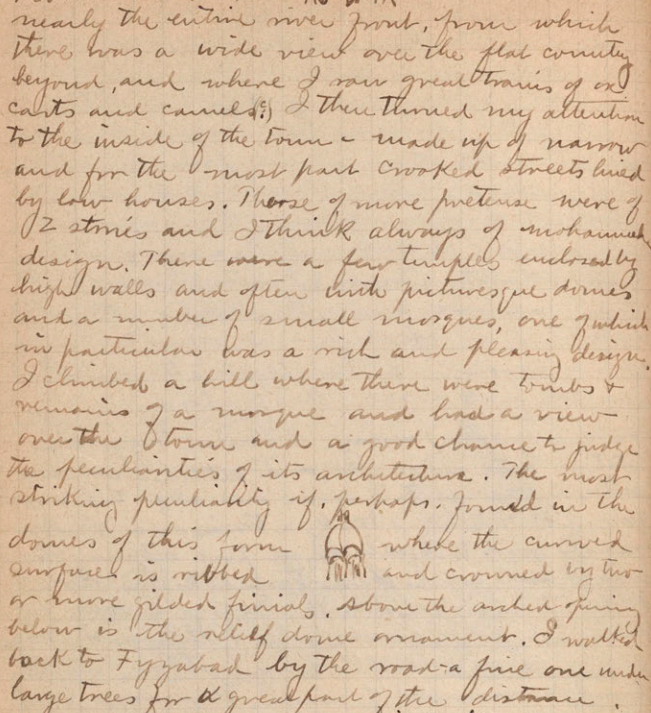 nearly the entire river front, from which
there was a wide view over the flat country
beyond, and where I saw great trains of ox
carts and camels(?) I then turned my attention
to the inside of the town - made up of narrow
and for the most part crooked streets lined
by low houses. Those of more pretense were of
2 stories and I think always of mohammedan
design. There were a few temples enclosed by
high walls and often with picturesque domes
and a number of small mosques, one of which
in particular was a rich and pleasing design.
I climbed a hill where there were tombs &
remains of a mosque and had a view
over the town and a good chance to judge
the peculiarities of its architecture. The most
striking peculiarity if, perhaps, found in the
domes of this form where the curved
surface is ribbed and crowned by two
or more gilded finials. Above the arched opening
below is the relief dome ornament. I walked
back to Fyzabad by the road - a fine one under
large trees for a great part of the distance.